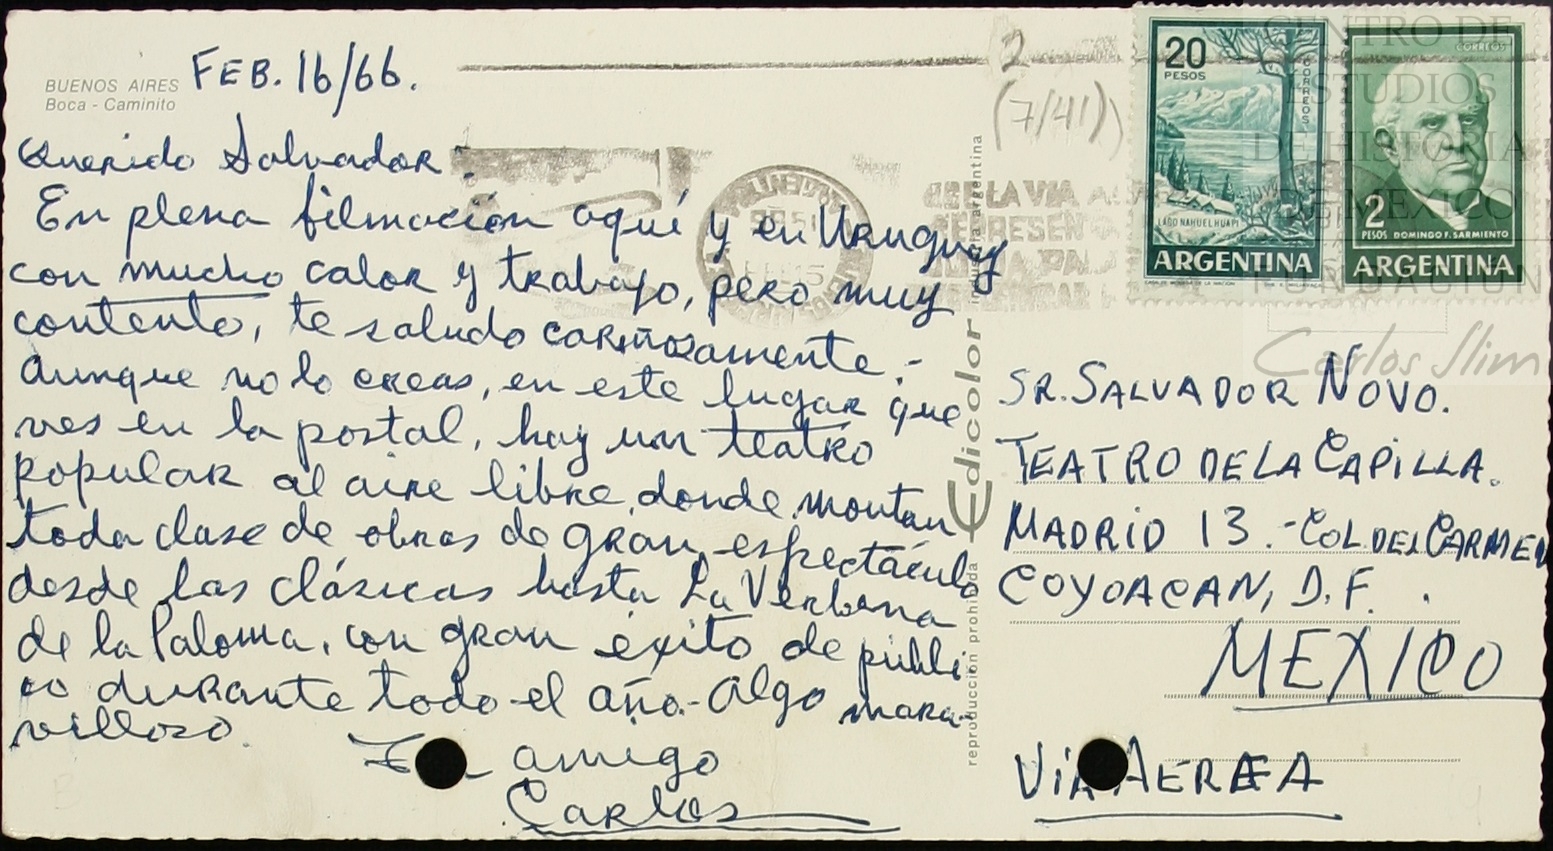 BUENOS AIRES
Boca - Caminito
FEB. 16/66.
Querido Salvador:
En plena filmación aquí y en Uruguay
con mucho calor y trabajo, pero muy
contento, te saludo cariñosamente.-
Aunque no lo creas, en este lugar que
ves en la postal, hay un teatro
popular al aire libre, donde montan
toda clase de obras de gran espectáculo
desde las clásicas hasta La Verbena
de la Paloma, con gran éxito de públi-
co durante todo el año.- Algo mara-
villoso.
amigo
Carlos
reproducción prohibida
Edicolor
industria argentina
2
(7/41)
20
PESOS
CORREOS
LAGO NAHUEL HUAPI
ARGENTINA
CORREOS
2
PESOS DOMINGO F. SARMIENTO
ARGENTINA
CENTRO DE
ESTUDIOS
DE HISTORIA
DE MEXICO
FUNDACION
Carlos Slim
SR. SALVADOR NOVO.
TEATRO DE LA CAPILLA.
MADRID 13.-COL. DEL CARMEN
COYOACAN, D.F.
MEXICO
VIA AEREA